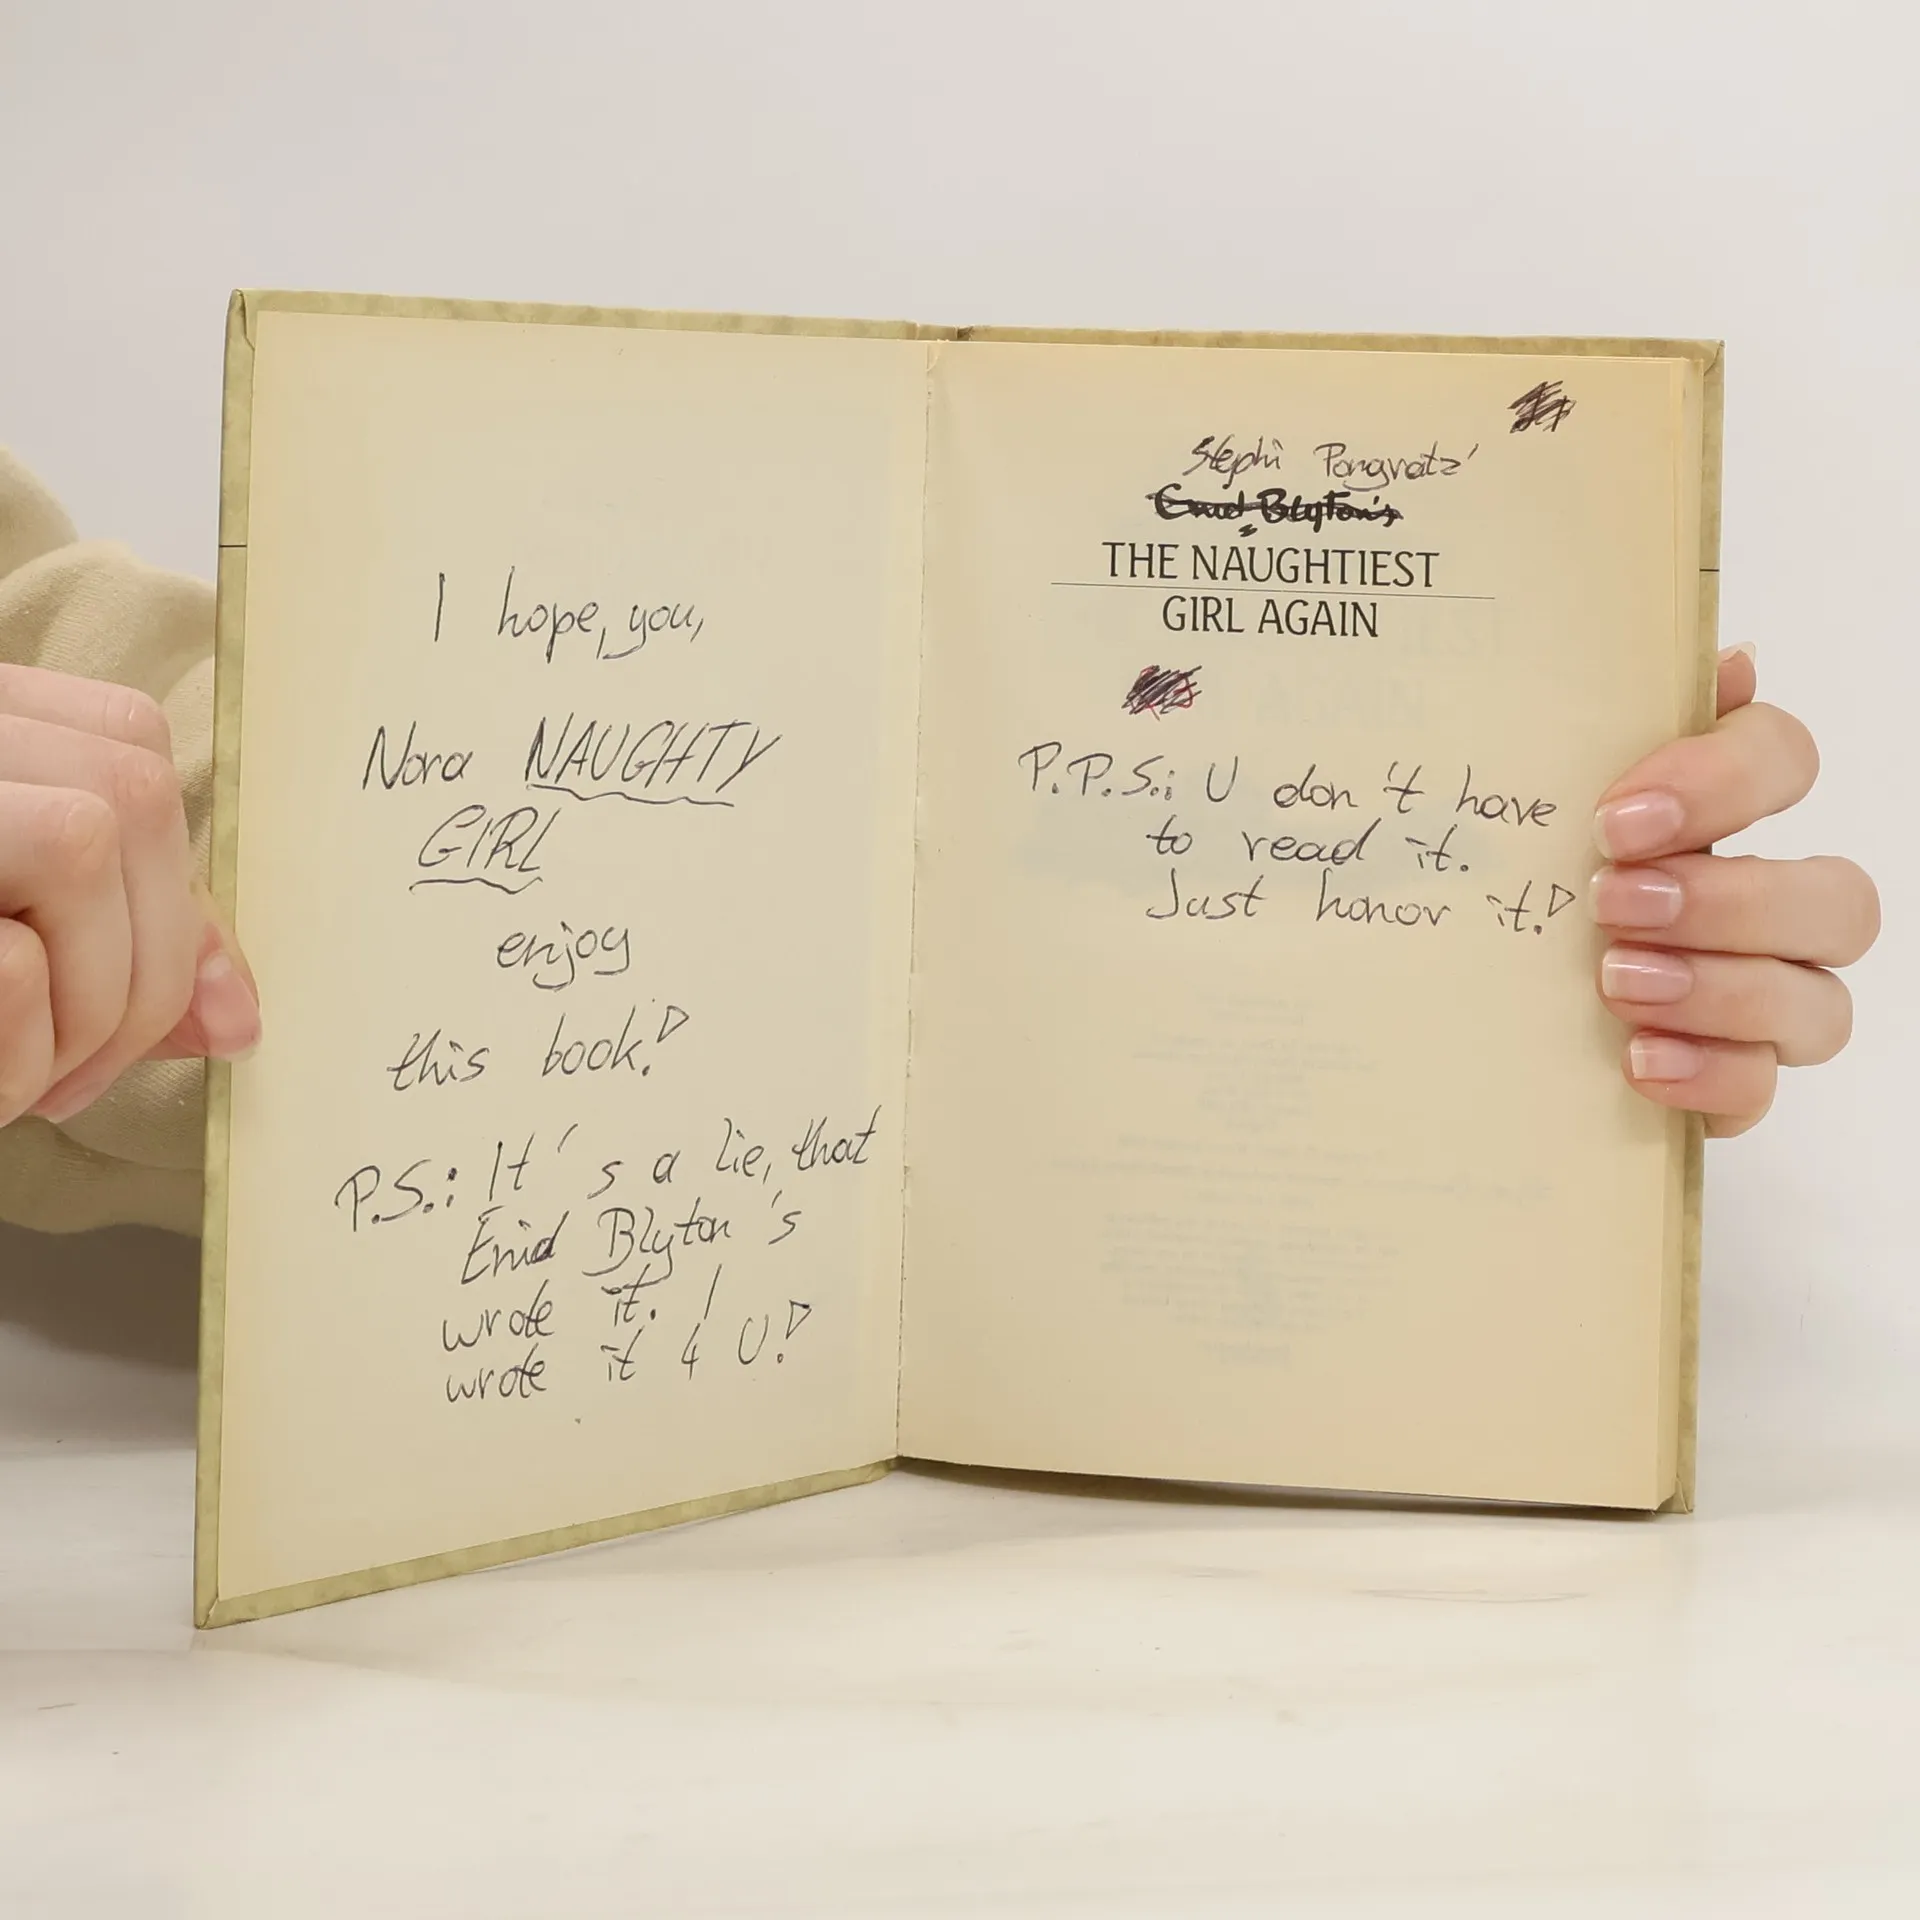 I hope, you,
Nora NAUGHTY
GIRL
enjoy
this book!
P.S.: It's a lie, that
Enid Blyton's
wrote it. I
wrote it 4 U!
Stephi Pongratz'
Enid Blyton's
THE NAUGHTIEST
GIRL AGAIN
P.P.S.: U don't have
to read it.
Just honor it!